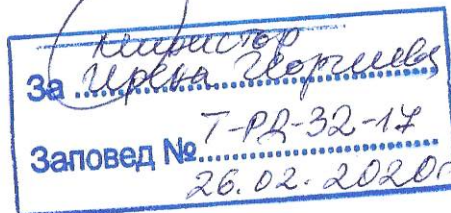 министор
За Ирена Георгиева
Заповед № Т-РД-32-17
26.02.2020г